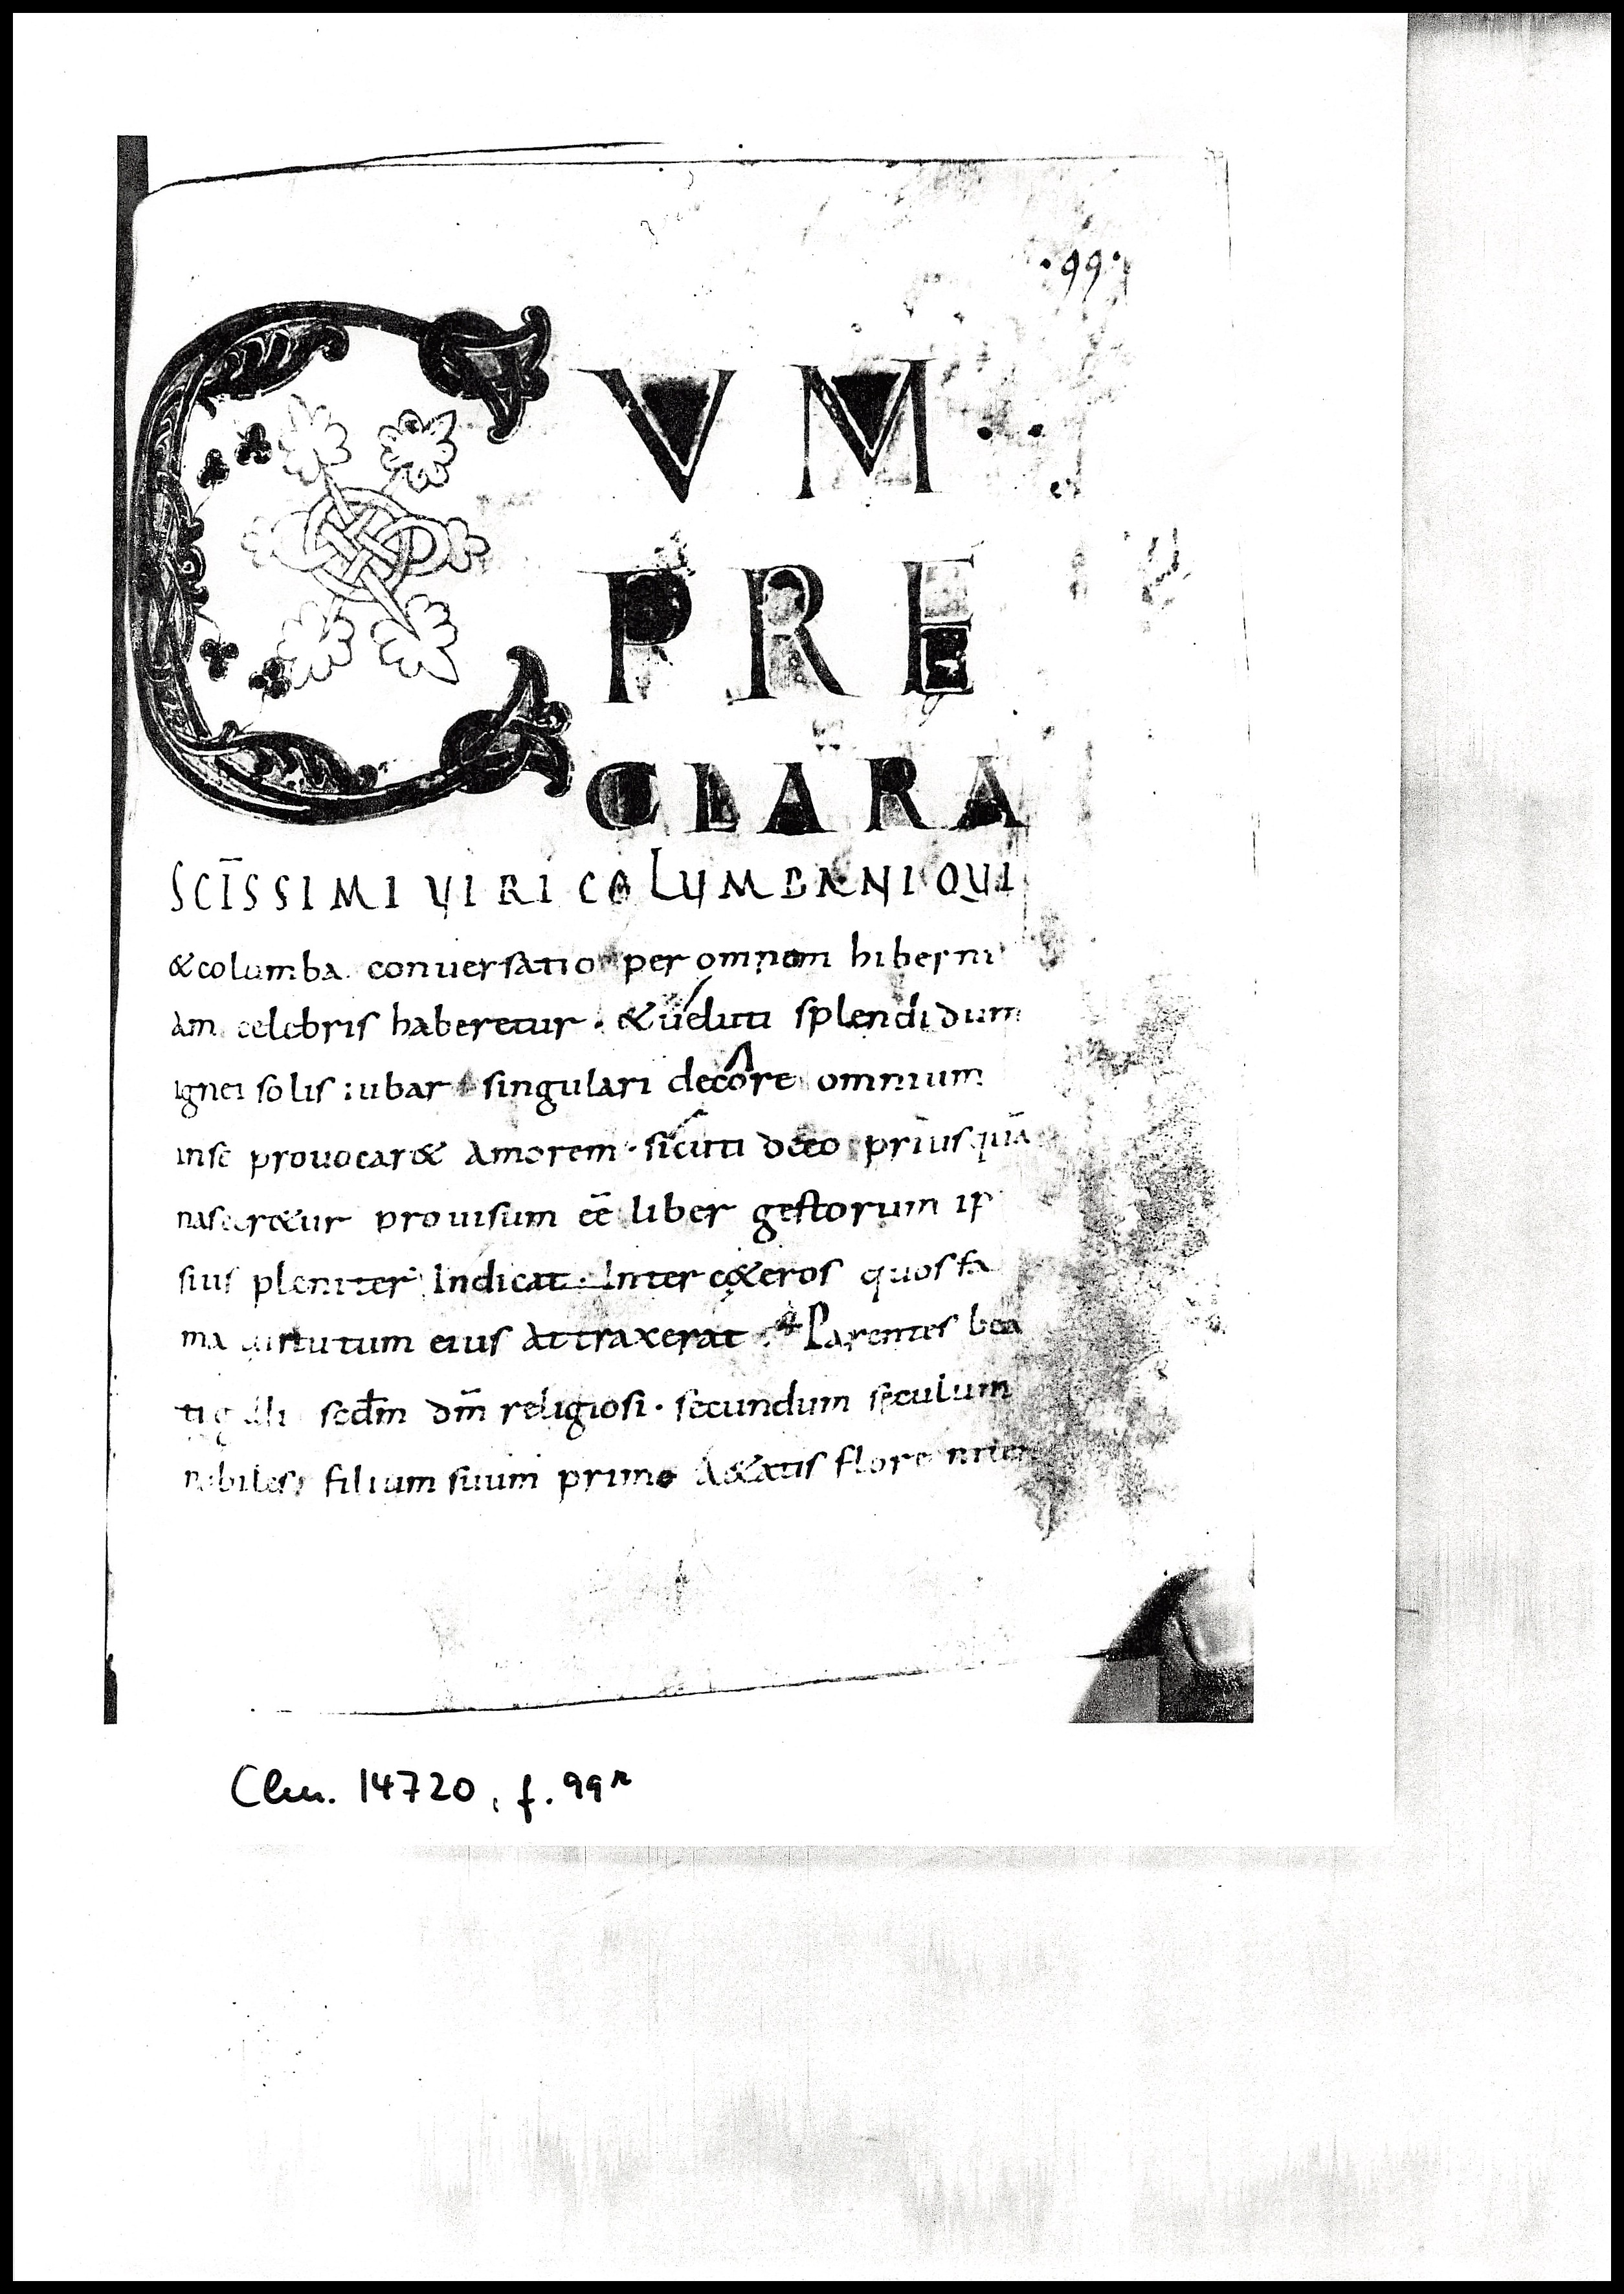 ·99·
CVM
PRE
CLARA
SCĪSSIMI VIRI COLUMBANI QUI
&columba conuersatio per omnem hiberni
am celebris haberetur · &ueluti splendidum
ignei solis iubar singulari decore omnium
inse prouocar& Amorem · sicuti deeo priusquā
nascer&ur prouisum eē liber gestorum ip
sius pleniter Indicat · Inter c&eros quos fa
ma uirtutum eius attraxerat Parentes bea
ti galli scdm dm̄ religiosi · secundum seculum
nobiles filium suum primo A&atis flore
Clm. 14720, f. 99r